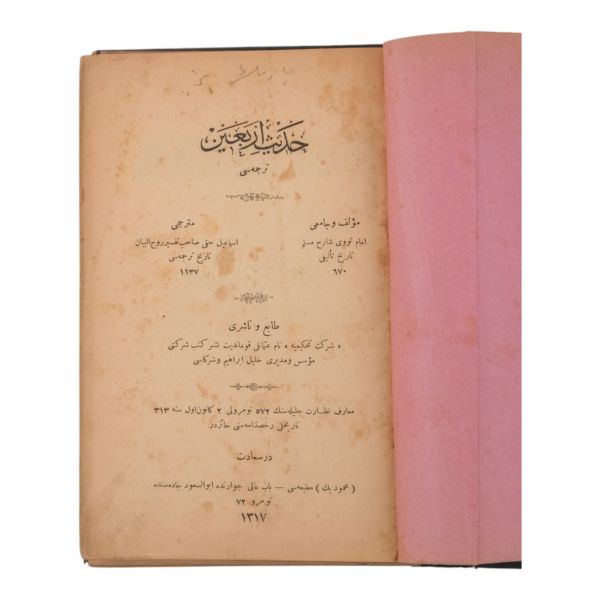 حديث اربعين
ترجمه‌سى
مؤلف و جامعى
امام نووى شارح مسلم
تاريخ تأليفى
٦٧٠
مترجمى
اسماعيل حقى صاحب تفسير روح البيان
تاريخ ترجمه‌سى
١١٣٧
طابع و ناشرى
« شركت تحكيميه » نام عثمانلى قومانديت نشر كتب شركتى
مؤسس و مديرى خليل ابراهيم و شركاسى
معارف نظارت جليله‌سنك ٥٧٢ نومرولى ٢ كانون اول سنه ٣١٣
تاريخلى رخصتنامه‌سنى حائزدر
درسعادت
( محمود بك ) مطبعه‌سى — باب عالى جوارنده ابوالسعود جاده‌سنده
نومرو ٧٢
١٣١٧